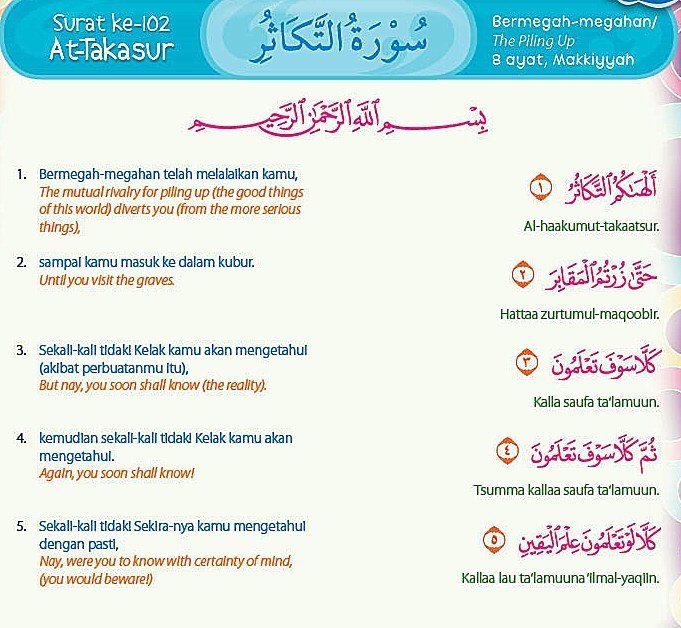 Surat ke-102
At-Takasur
سُوْرَةُ التَّكَاثُرِ
Bermegah-megahan/
The Piling Up
8 ayat, Makkiyyah
بِسْمِ اللَّهِ الرَّحْمَٰنِ الرَّحِيمِ
1. Bermegah-megahan telah melalaikan kamu,
The mutual rivalry for piling up (the good things
of this world) diverts you (from the more serious
things),
أَلْهَىٰكُمُ التَّكَاثُرُ ١
Al-haakumut-takaatsur.
2. sampai kamu masuk ke dalam kubur.
Until you visit the graves.
حَتَّىٰ زُرْتُمُ الْمَقَابِرَ ٢
Hattaa zurtumul-maqoobir.
3. Sekali-kali tidak! Kelak kamu akan mengetahui
(akibat perbuatanmu itu),
But nay, you soon shall know (the reality).
كَلَّا سَوْفَ تَعْلَمُونَ ٣
Kalla saufa ta'lamuun.
4. kemudian sekali-kali tidak! Kelak kamu akan
mengetahui.
Again, you soon shall know!
ثُمَّ كَلَّا سَوْفَ تَعْلَمُونَ ٤
Tsumma kallaa saufa ta'lamuun.
5. Sekali-kali tidak! Sekira-nya kamu mengetahui
dengan pasti,
Nay, were you to know with certainty of mind,
(you would beware!)
كَلَّا لَوْ تَعْلَمُونَ عِلْمَ الْيَقِينِ ٥
Kallaa lau ta'lamuuna 'ilmal-yaqiin.